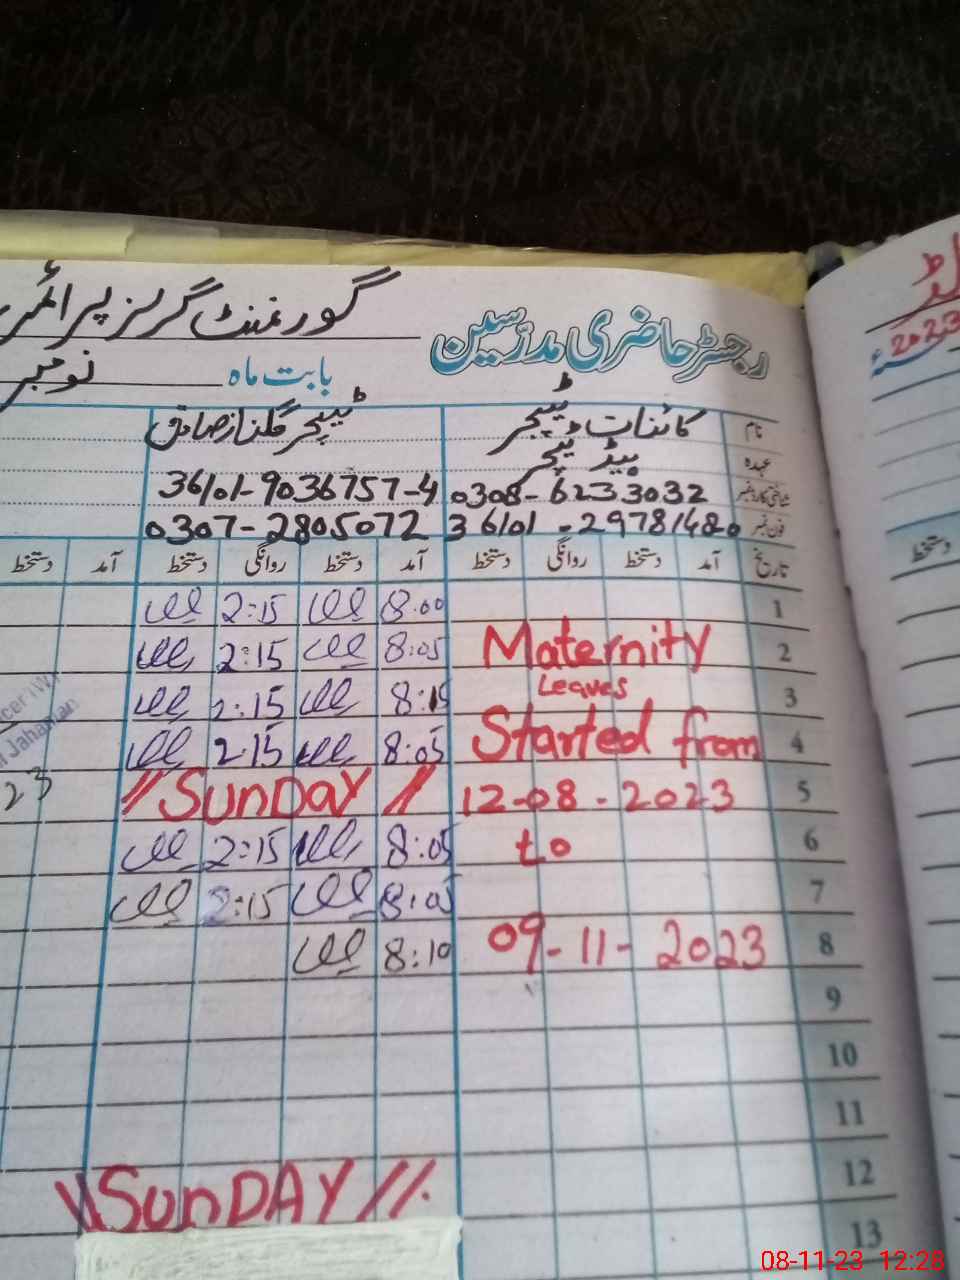 گورنمنٹ گرلز پرائمری
رجسٹر حاضری مدرسین
بابت ماہ نومبر
لڈ
2023
نام کائنات ٹیچر ٹیچر گلناز صادق
عہدہ ہیڈ ٹیچر
شناختی کارڈ نمبر 0308-6233032 36101-9036757-4
فون نمبر 36101-29781480 0307-2805072
تاریخ آمد دستخط روانگی دستخط آمد دستخط روانگی دستخط آمد دستخط
دستخط
1 8:00 2:15
2 Maternity 8:05 2:15
3 Leaves 8:15 2:15
4 Started from 8:05 2:15
5 12-08-2023 // SUNDAY //
6 to 8:05 2:15
7 8:05 2:15
8 09-11-2023 8:10
9
10
11
12 \\ SUNDAY //
13
cer (W)
Jahanian
23
08-11-23 12:28